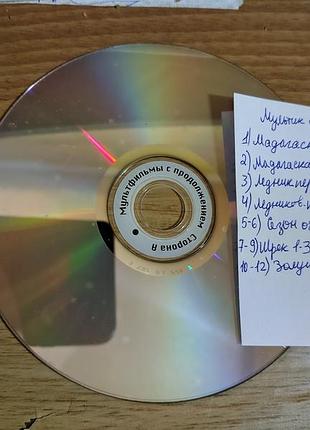 Мультфильмы с продолжением
Сторона А
Мультик
1) Мадагас
2) Мадагаска
3) Ледник пер
4) Ледников.
5-6) Сезон ох
7-9) Шрек 1-3
10-12) Золу